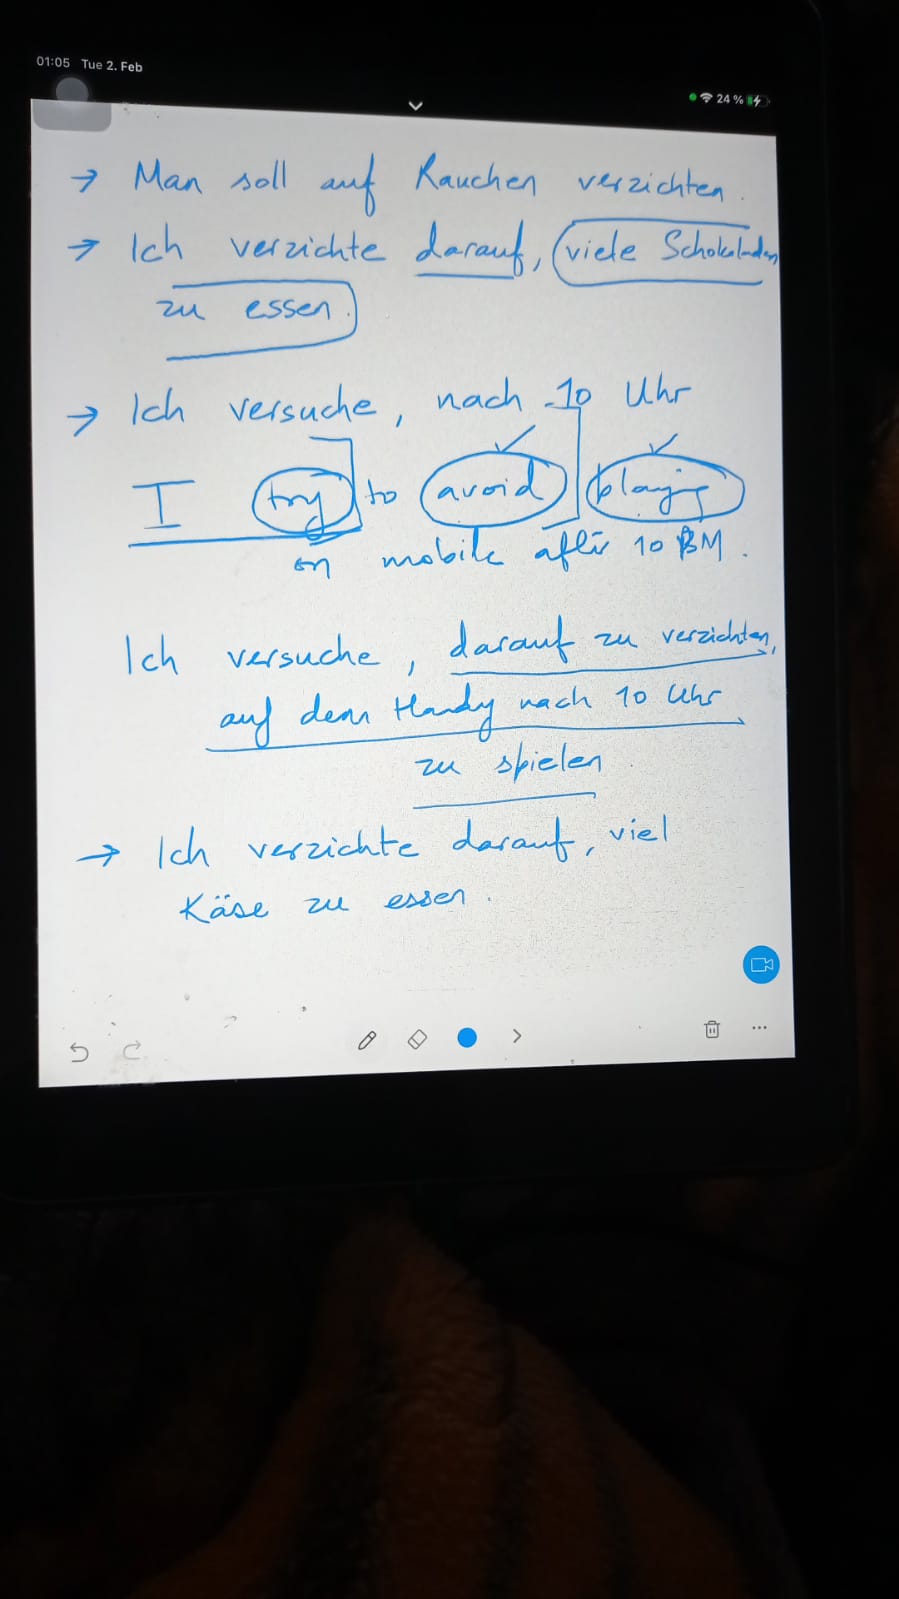 01:05 Tue 2. Feb
24 %
→ Man soll auf Rauchen verzichten.
→ Ich verzichte darauf, viele Schokoladen
zu essen.
→ Ich versuche, nach 10 Uhr
I try to avoid playing
on mobile after 10 PM.
Ich versuche, darauf zu verzichten,
auf dem Handy nach 10 Uhr
zu spielen
→ Ich verzichte darauf, viel
Käse zu essen.